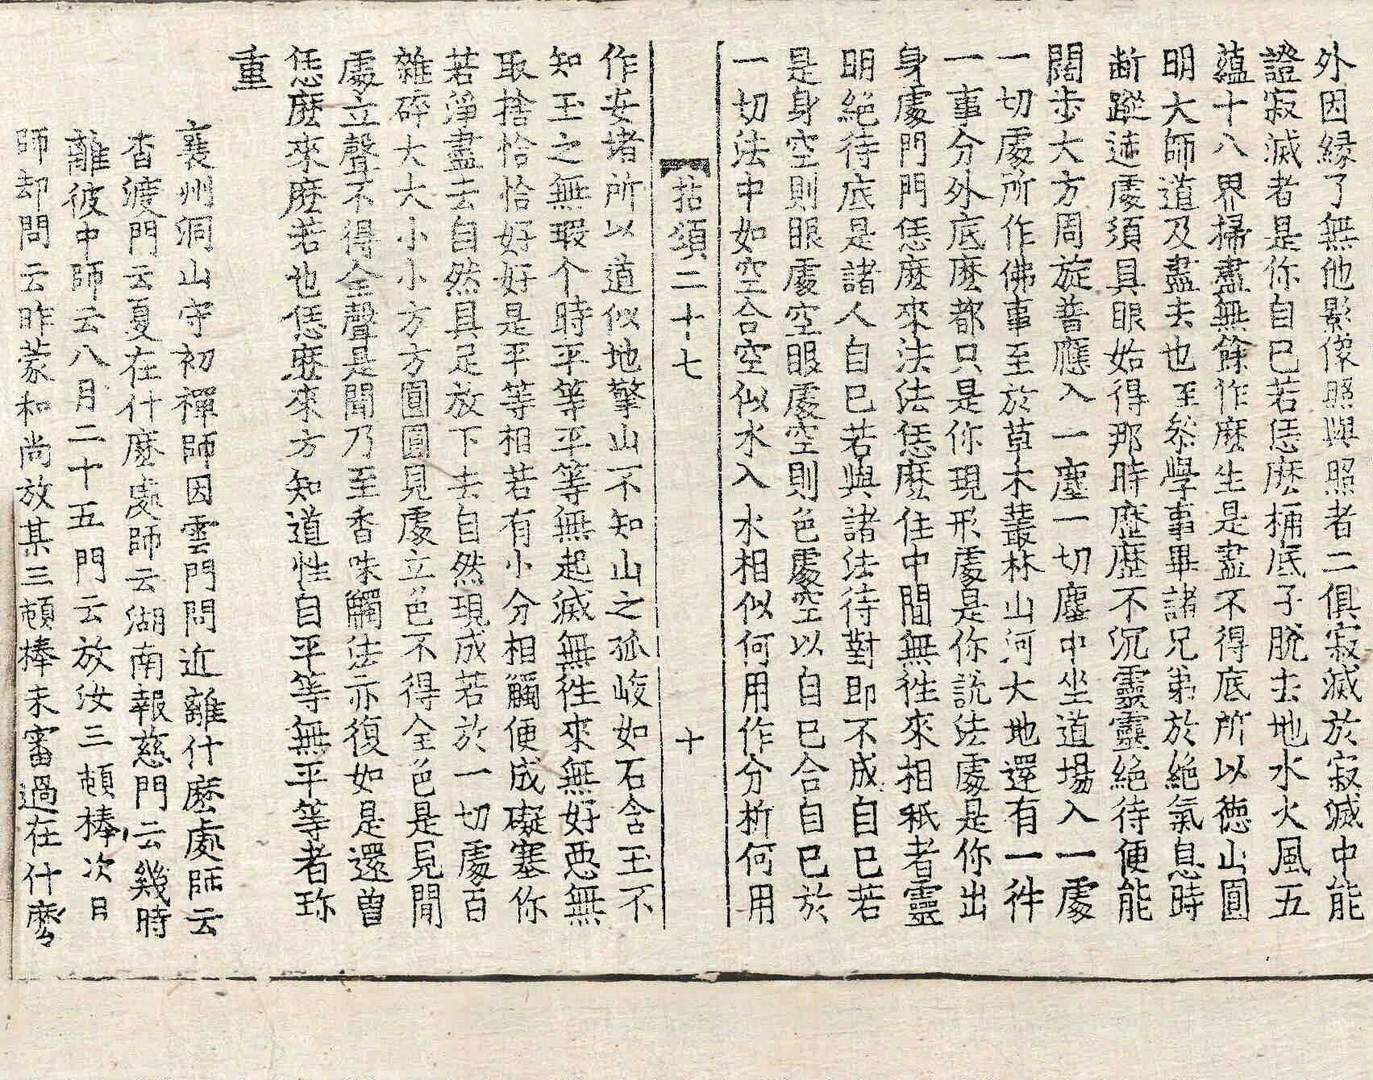 外因緣了無他影像照與照者二俱寂滅於寂滅中能
證寂滅者是你自己若恁麽桶底子脫去地水火風五
蘊十八界掃盡無餘作麽生是盡不得底所以德山圓
明大師道及盡去也至叅學事畢諸兄弟於絶氣息時
断蹤迹處須具眼始得那時歷歷不沉靈靈絶待便能
闊步大方周旋普應入一塵一切塵中坐道場入一處
一切處所作佛事至於草木叢林山河大地還有一件
一事分外底麽都只是你現形處是你說法處是你出
身處門門恁麽來法法恁麽住中間無徃來相秖者靈
明絶待底是諸人自己若與諸法待對即不成自己若
是身空則眼處空眼處空則色處空以自己合自己於
一切法中如空合空似水入水相似何用作分析何用
拈頌二十七 十
作安堵所以道似地擎山不知山之孤峻如石含玉不
知玉之無瑕个時平等平等無起滅無徃來無好惡無
取捨恰恰好好是平等相若有小分相觸便成礙塞你
若淨盡去自然具足放下去自然現成若於一切處百
雜碎大大小小方方圓圓見處立色不得全色是見聞
處立聲不得全聲是聞乃至香味觸法亦復如是還曽
恁麽來麽若也恁麽來方知道性自平等無平等者珎
重
襄州洞山守初禪師因雲門問近離什麽處師云
查渡門云夏在什麽處師云湖南報慈門云幾時
離彼中師云八月二十五門云放汝三頓棒次日
師却問云昨蒙和尚放某三頓棒未審過在什麽